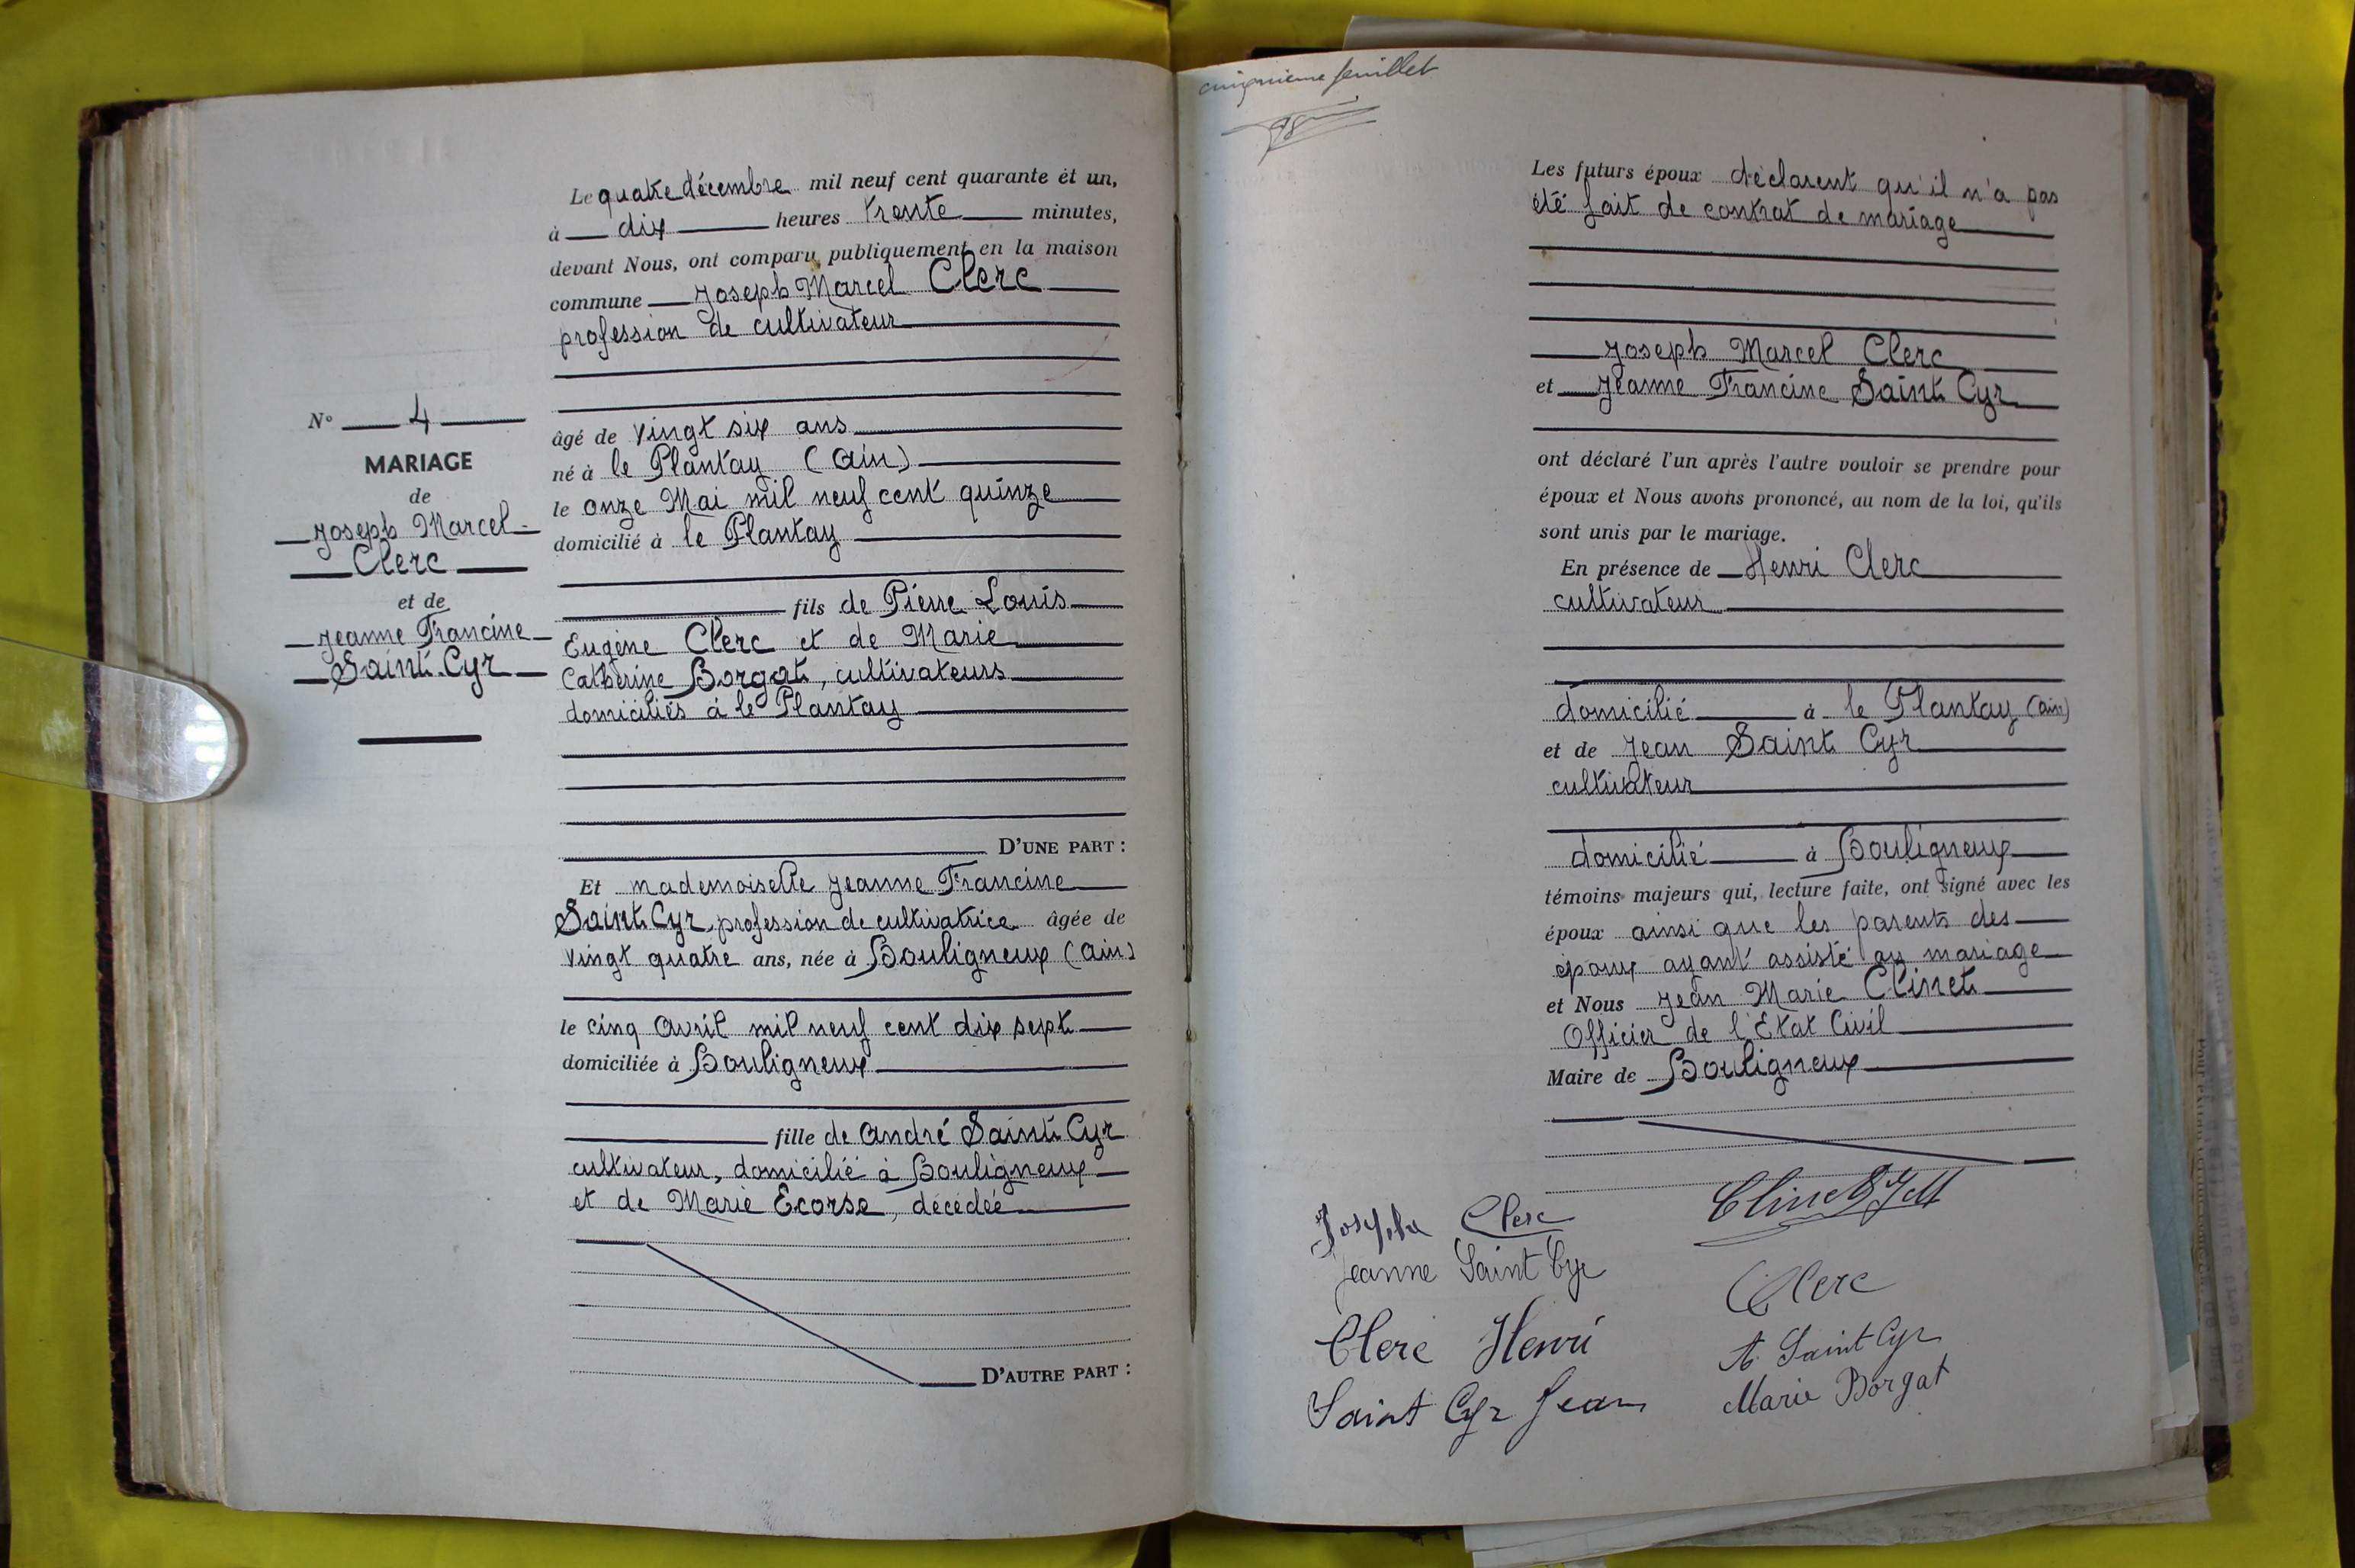 N° 4
MARIAGE
de
Joseph Marcel
Clerc
et de
Jeanne Francine
Saint-Cyr
Le quatre décembre mil neuf cent quarante et un,
à dix heures trente minutes,
devant Nous, ont comparu publiquement en la maison
commune Joseph Marcel Clerc
profession de cultivateur
âgé de vingt six ans
né à le Plantay (Ain)
le onze Mai mil neuf cent quinze
domicilié à le Plantay
fils de Pierre Louis
Eugène Clerc et de Marie
Catherine Borgat, cultivateurs
domiciliés à le Plantay
D'UNE PART :
Et mademoiselle Jeanne Francine
Saint Cyr, profession de cultivatrice âgée de
vingt quatre ans, née à Bouligneux (Ain)
le cinq Avril mil neuf cent dix sept
domiciliée à Bouligneux
fille de André Saint Cyr
cultivateur, domicilié à Bouligneux
et de Marie Ecorse, décédée
D'AUTRE PART :
cinquième feuillet
Les futurs époux déclarent qu'il n'a pas
été fait de contrat de mariage
Joseph Marcel Clerc
et Jeanne Francine Saint Cyr
ont déclaré l'un après l'autre vouloir se prendre pour
époux et Nous avons prononcé, au nom de la loi, qu'ils
sont unis par le mariage.
En présence de Henri Clerc
cultivateur
domicilié à le Plantay (Ain)
et de Jean Saint Cyr
cultivateur
domicilié à Bouligneux
témoins majeurs qui, lecture faite, ont signé avec les
époux ainsi que les parents des
époux ayant assisté au mariage
et Nous Jean Marie Clinet
Officier de l'Etat Civil
Maire de Bouligneux
Joseph Clerc
Clinet JM
Jeanne Saint Cyr
Clerc
Clerc Henri
A. Saint Cyr
Saint Cyr Jean
Marie Borgat